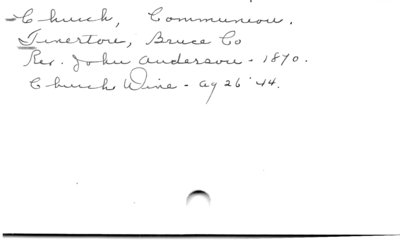 Church, Communion.
Tiverton, Bruce Co
Rev. John Anderson - 1870.
Church Wine - ag 26 '44.